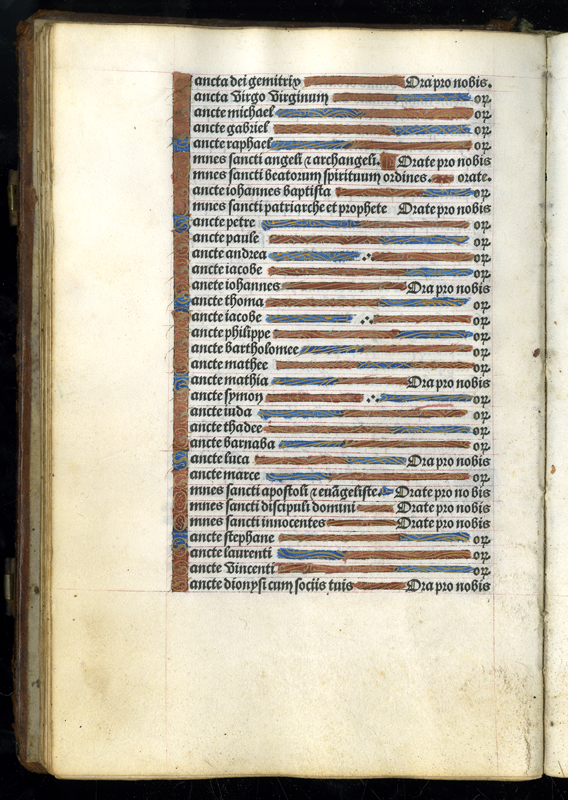 Sancta dei gemitrix Ora pro nobis.
Sancta Virgo Virginum oꝝ
Sancte michael oꝝ
Sancte gabriel oꝝ
Sancte raphael oꝝ
Omnes sancti angeli ⁊ archangeli. Orate pro nobis
Omnes sancti beatorum spirituum ordines. orate.
Sancte iohannes baptista oꝝ
Omnes sancti patriarche et prophete Orate pro nobis
Sancte petre oꝝ
Sancte paule oꝝ
Sancte andrea oꝝ
Sancte iacobe oꝝ
Sancte iohannes Ora pro nobis
Sancte thoma oꝝ
Sancte iacobe oꝝ
Sancte philippe oꝝ
Sancte bartholomee oꝝ
Sancte mathee oꝝ
Sancte mathia Ora pro nobis
Sancte symon oꝝ
Sancte iuda oꝝ
Sancte thadee oꝝ
Sancte barnaba oꝝ
Sancte luca Ora pro nobis
Sancte marce oꝝ
Omnes sancti apostoli ⁊ euāgeliste. Orate pro nobis
Omnes sancti discipuli domini Orate pro nobis
Omnes sancti innocentes Orate pro nobis
Sancte stephane oꝝ
Sancte laurenti oꝝ
Sancte Vincenti oꝝ
Sancte dionysi cum sociis tuis Ora pro nobis